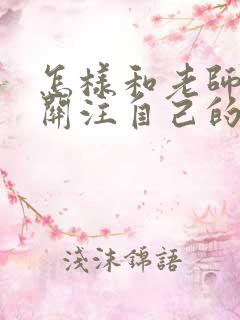 怎樣和老師
關注自己的
淺沫錦語